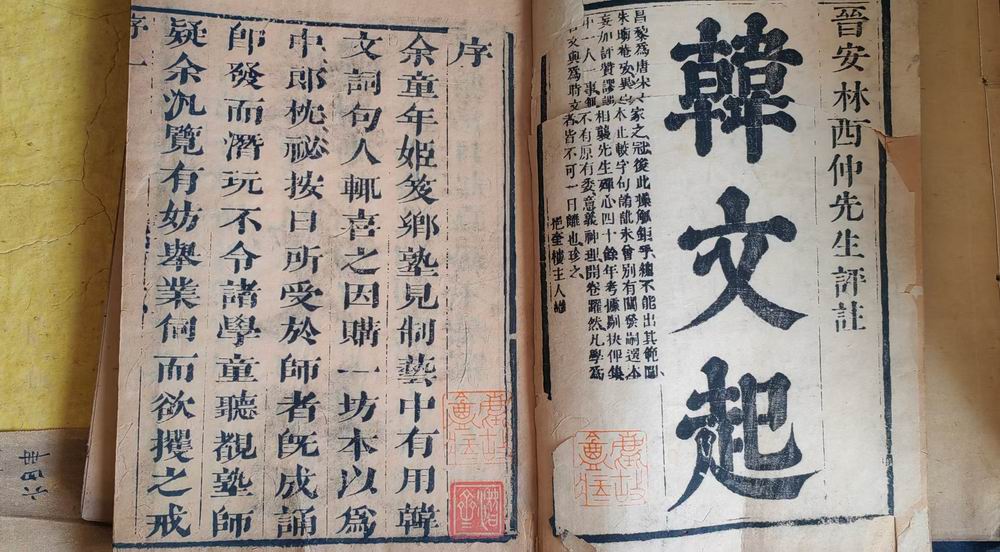 晉安林西仲先生評註
韓文起
昌黎爲唐宋大家之冠後此據觚鉅手總不能出其範圍
朱晦菴攷異一本止較字句譌訛未曾別有闡發嗣選本
妄加評贊謬誤相襲先生殫心四十餘年考據剔抉仰集
中一人一事無不有原有委意義神理開卷躍然凡學爲
古文與爲時文者皆不可一日離也珍之
挹奎樓主人識
序
余童年姬笈鄉塾見制藝中有用韓
文詞句人輒喜之因購一坊本以爲
中郎枕祕按日所受於師者旣成誦
卽發而潛玩不令諸學童聽覩塾師
疑余汎覽有妨舉業伺而欲攫之戒
序 一